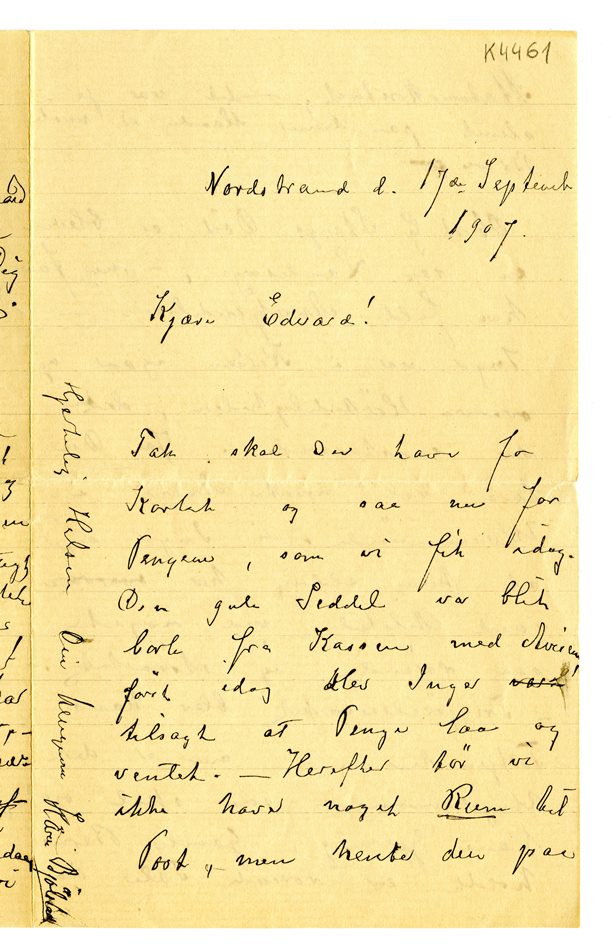 K4461
Nordstrand d. 17de Septemb
1907.
Kjære Edvard!
Tak skal Du have for
Kortet og saa nu for
Pengene, som vi fik idag.
Den gule Seddel var blit
bort fra Kassen med Avisen!
først idag blev Inger
tilsagt at Penge laa og
ventet. — Herefter tör vi
ikke have noget Rum til
Post, men hente den paa
Hjertelig Hilsen Din hengivne